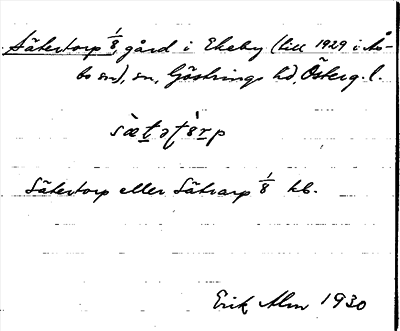 Sätertorp 1/8, gård i Ekeby (till 1929 i Åsbo sn), sn, Göstrings hd, Österg. l.
sæ̀tətàrp
Sätertorp eller Sätrarp 1/8 kb.
Erik Alm 1930